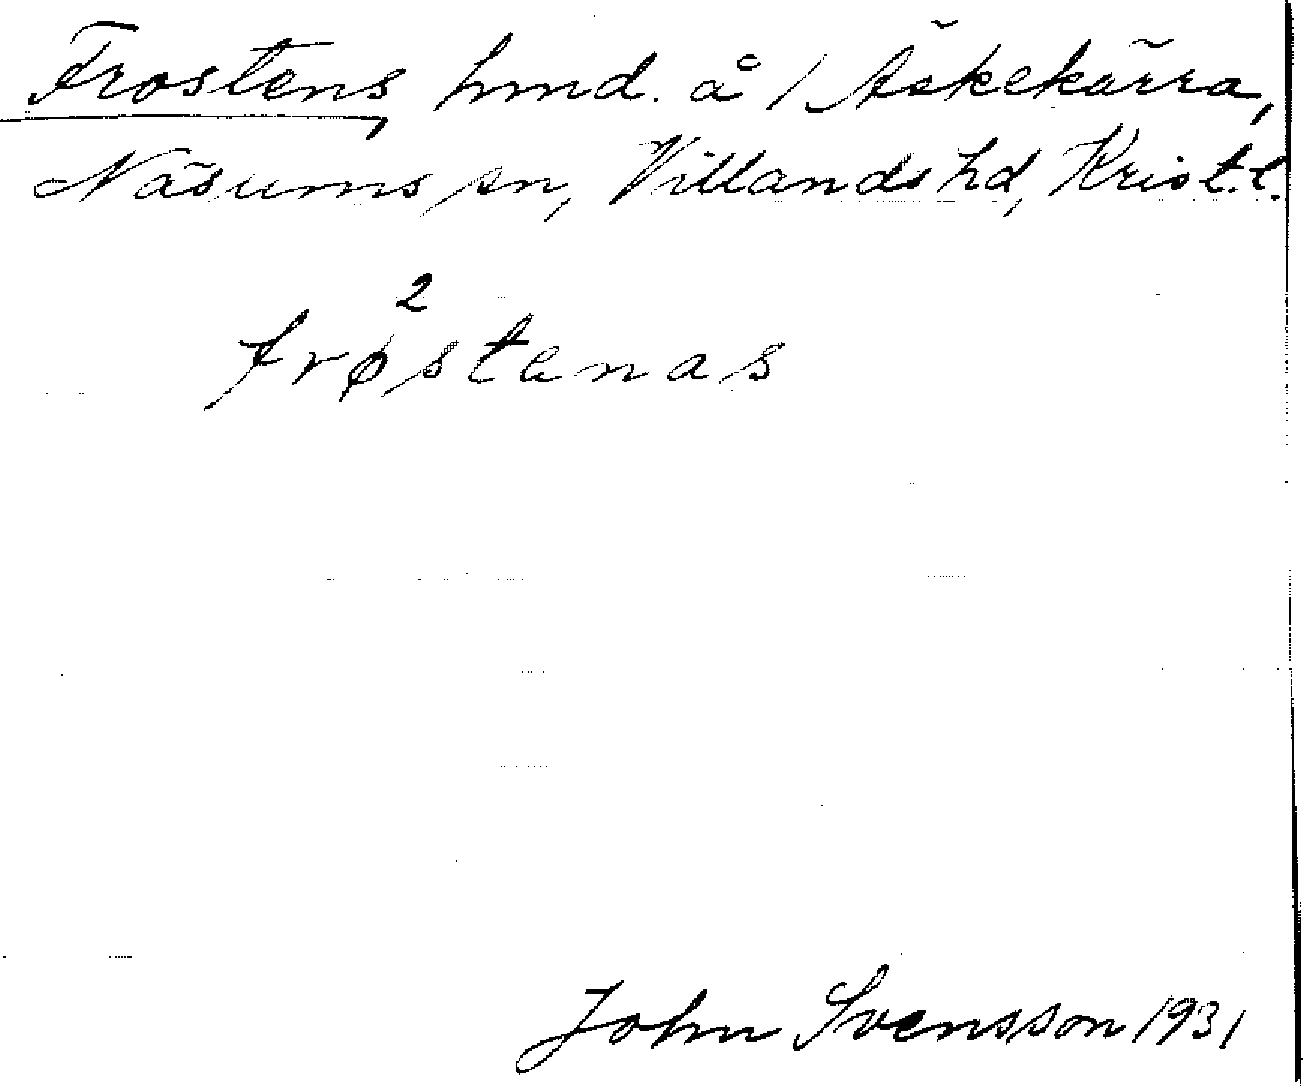 Frostens, hmd. å / Äskekärra,
Näsums sn, Villands hd, Krist. l.
2
frøstenas
John Svensson 1931